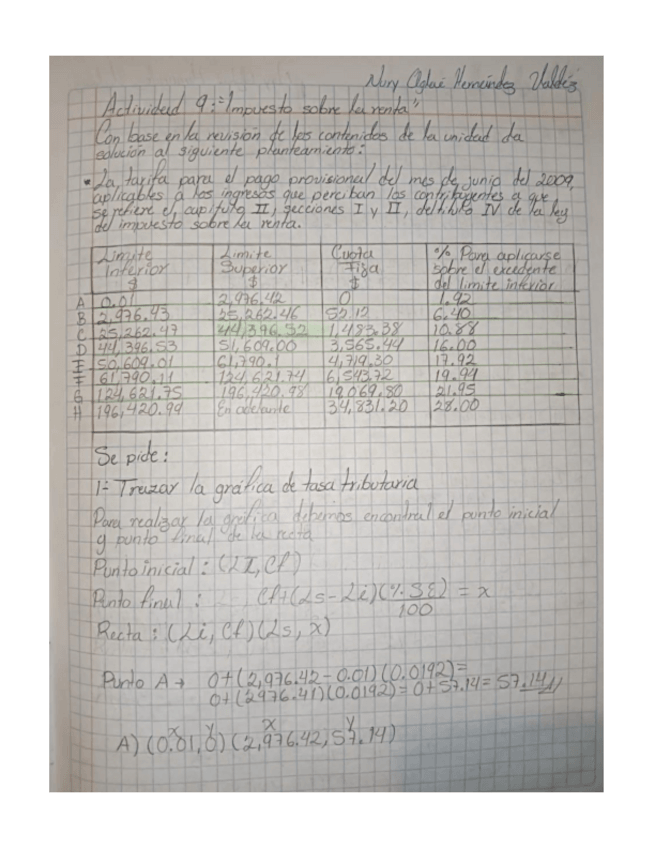 Nury Aglai Hernández Valdéz
Actividad 9: "Impuesto sobre la renta"
Con base en la revisión de los contenidos de la unidad da
solución al siguiente planteamiento:
• La tarifa para el pago provisional del mes de junio del 2009,
aplicables a los ingresos que perciban los contribuyentes a que
se refiere el capítulo II, secciones I y II, del título IV de la ley
del impuesto sobre la renta.
Limite Inferior $ | Limite Superior $ | Cuota Fija $ | % Para aplicarse sobre el excedente del limite inferior
A 0.01 2,976.42 0 1.92
B 2,976.43 25,262.46 57.12 6.40
C 25,262.47 44,396.52 1,483.38 10.88
D 44,396.53 51,609.00 3,565.44 16.00
E 50,609.01 61,790.1 4,719.30 17.92
F 61,790.11 124,621.74 6,543.72 19.94
G 124,621.75 196,420.98 19,069.80 21.95
H 196,420.99 En adelante 34,831.20 28.00
Se pide:
1- Trazar la gráfica de tasa tributaria
Para realizar la gráfica debemos encontrar el punto inicial
y punto final de la recta
Punto inicial: (LI, Cf)
Punto final: Cf+(Ls-Li)(% SE) = x
100
Recta: (Li, Cf)(Ls, x)
Punto A → 0+(2,976.42-0.01)(0.0192)=
0+(2976.41)(0.0192)= 0+57.14= 57.14
x y x y
A) (0.01, 0) (2,976.42, 57.14)